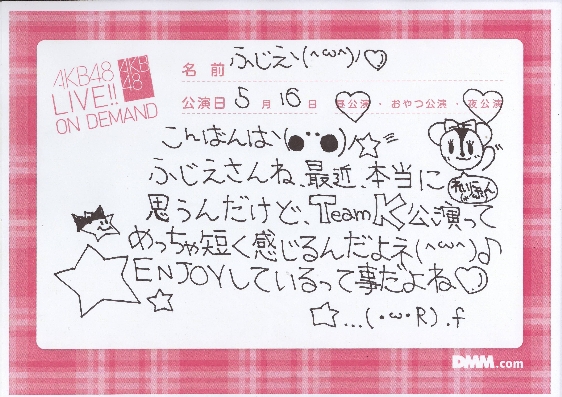 AKB48
LIVE!!
ON DEMAND
AKB
48
名前 ふじえヽ(^ω^)ノ♡
公演日 5月16日 昼公演・おやつ公演・夜公演
こんばんはヽ(●¨●)ノ☆
ふじえさんね、最近、本当に
思うんだけど、TeamK公演って
めっちゃ短く感じるんだよネ(^ω^)♪
ENJOYしているって事だよね♡
☆...(・ω・R).f
DMM.com